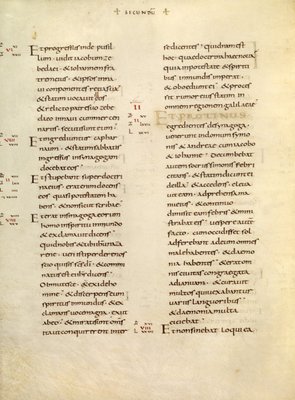 + SECUNDU̅ +
Et progressus inde pusil
lum · uidit iacobum ze
bedaei · & iohannem fra
trem eius · & ipsos in na
ui componentes retia sua
& statim uocauit illos
& relicto patre suo zebe
daeo in naui cum mercen
nariis · secuti sunt eum ·
Et ingrediuntur caphar
naum · & statim sabbatis
ingressus in synagogam
docebat eos ·
Et stupebant super doctri
na eius · erat enim docens eos
quasi potestatem ha
bens · & non sicut scribae
Et erat in synagoga eorum
homo in spiritu inmundo
& exclamauit dicens
Quid nobis & tibi ihu naza
rene · uenisti perdere nos
scio qui sis scs di · & commi
natus est ei ihs dicens
Obmutesce · & exi de ho
mine · & discerpens eum
spiritus inmundus · & ex
clamans uoce magna · exiit
ab eo · & mirati sunt omnes
ita ut conquirerent inter
se dicentes · quidnam est
hoc quae doctrina haec noua
quia in potestate & spiriti
bus inmundis imperat ·
& oboediunt ei · & proces
sit rumor eius statim in
omnem regionem galilaeae
II
ET PROTINUS
egredientes de synagoga ·
uenerunt in domum simo
nis & andreae cum iacobo
& iohanne · Decumbebat
autem socrus simonis febri
citans · & statim dicunt ei
de illa · & accedens · eleua
uit eam adprehensa ma
nu eius · & continuo
dimisit eam febris & minis
trabat eis · uespere autem
facto cum occidisset sol ·
adferebant ad eum omnes
male habentes · & daemo
nia habentes · & erat om
nis ciuitas congregata
ad ianuam · & curauit
multos qui uexabantur
uariis languoribus
& daemonia multa
eiciebat ·
Et non sinebat loqui ea